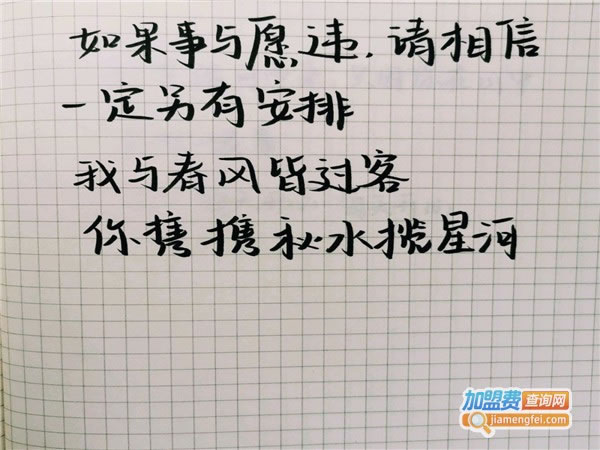 如果事与愿违.请相信
一定另有安排
我与春风皆过客
你携携秋水揽星河
加盟费查询网
jiamengfei.com